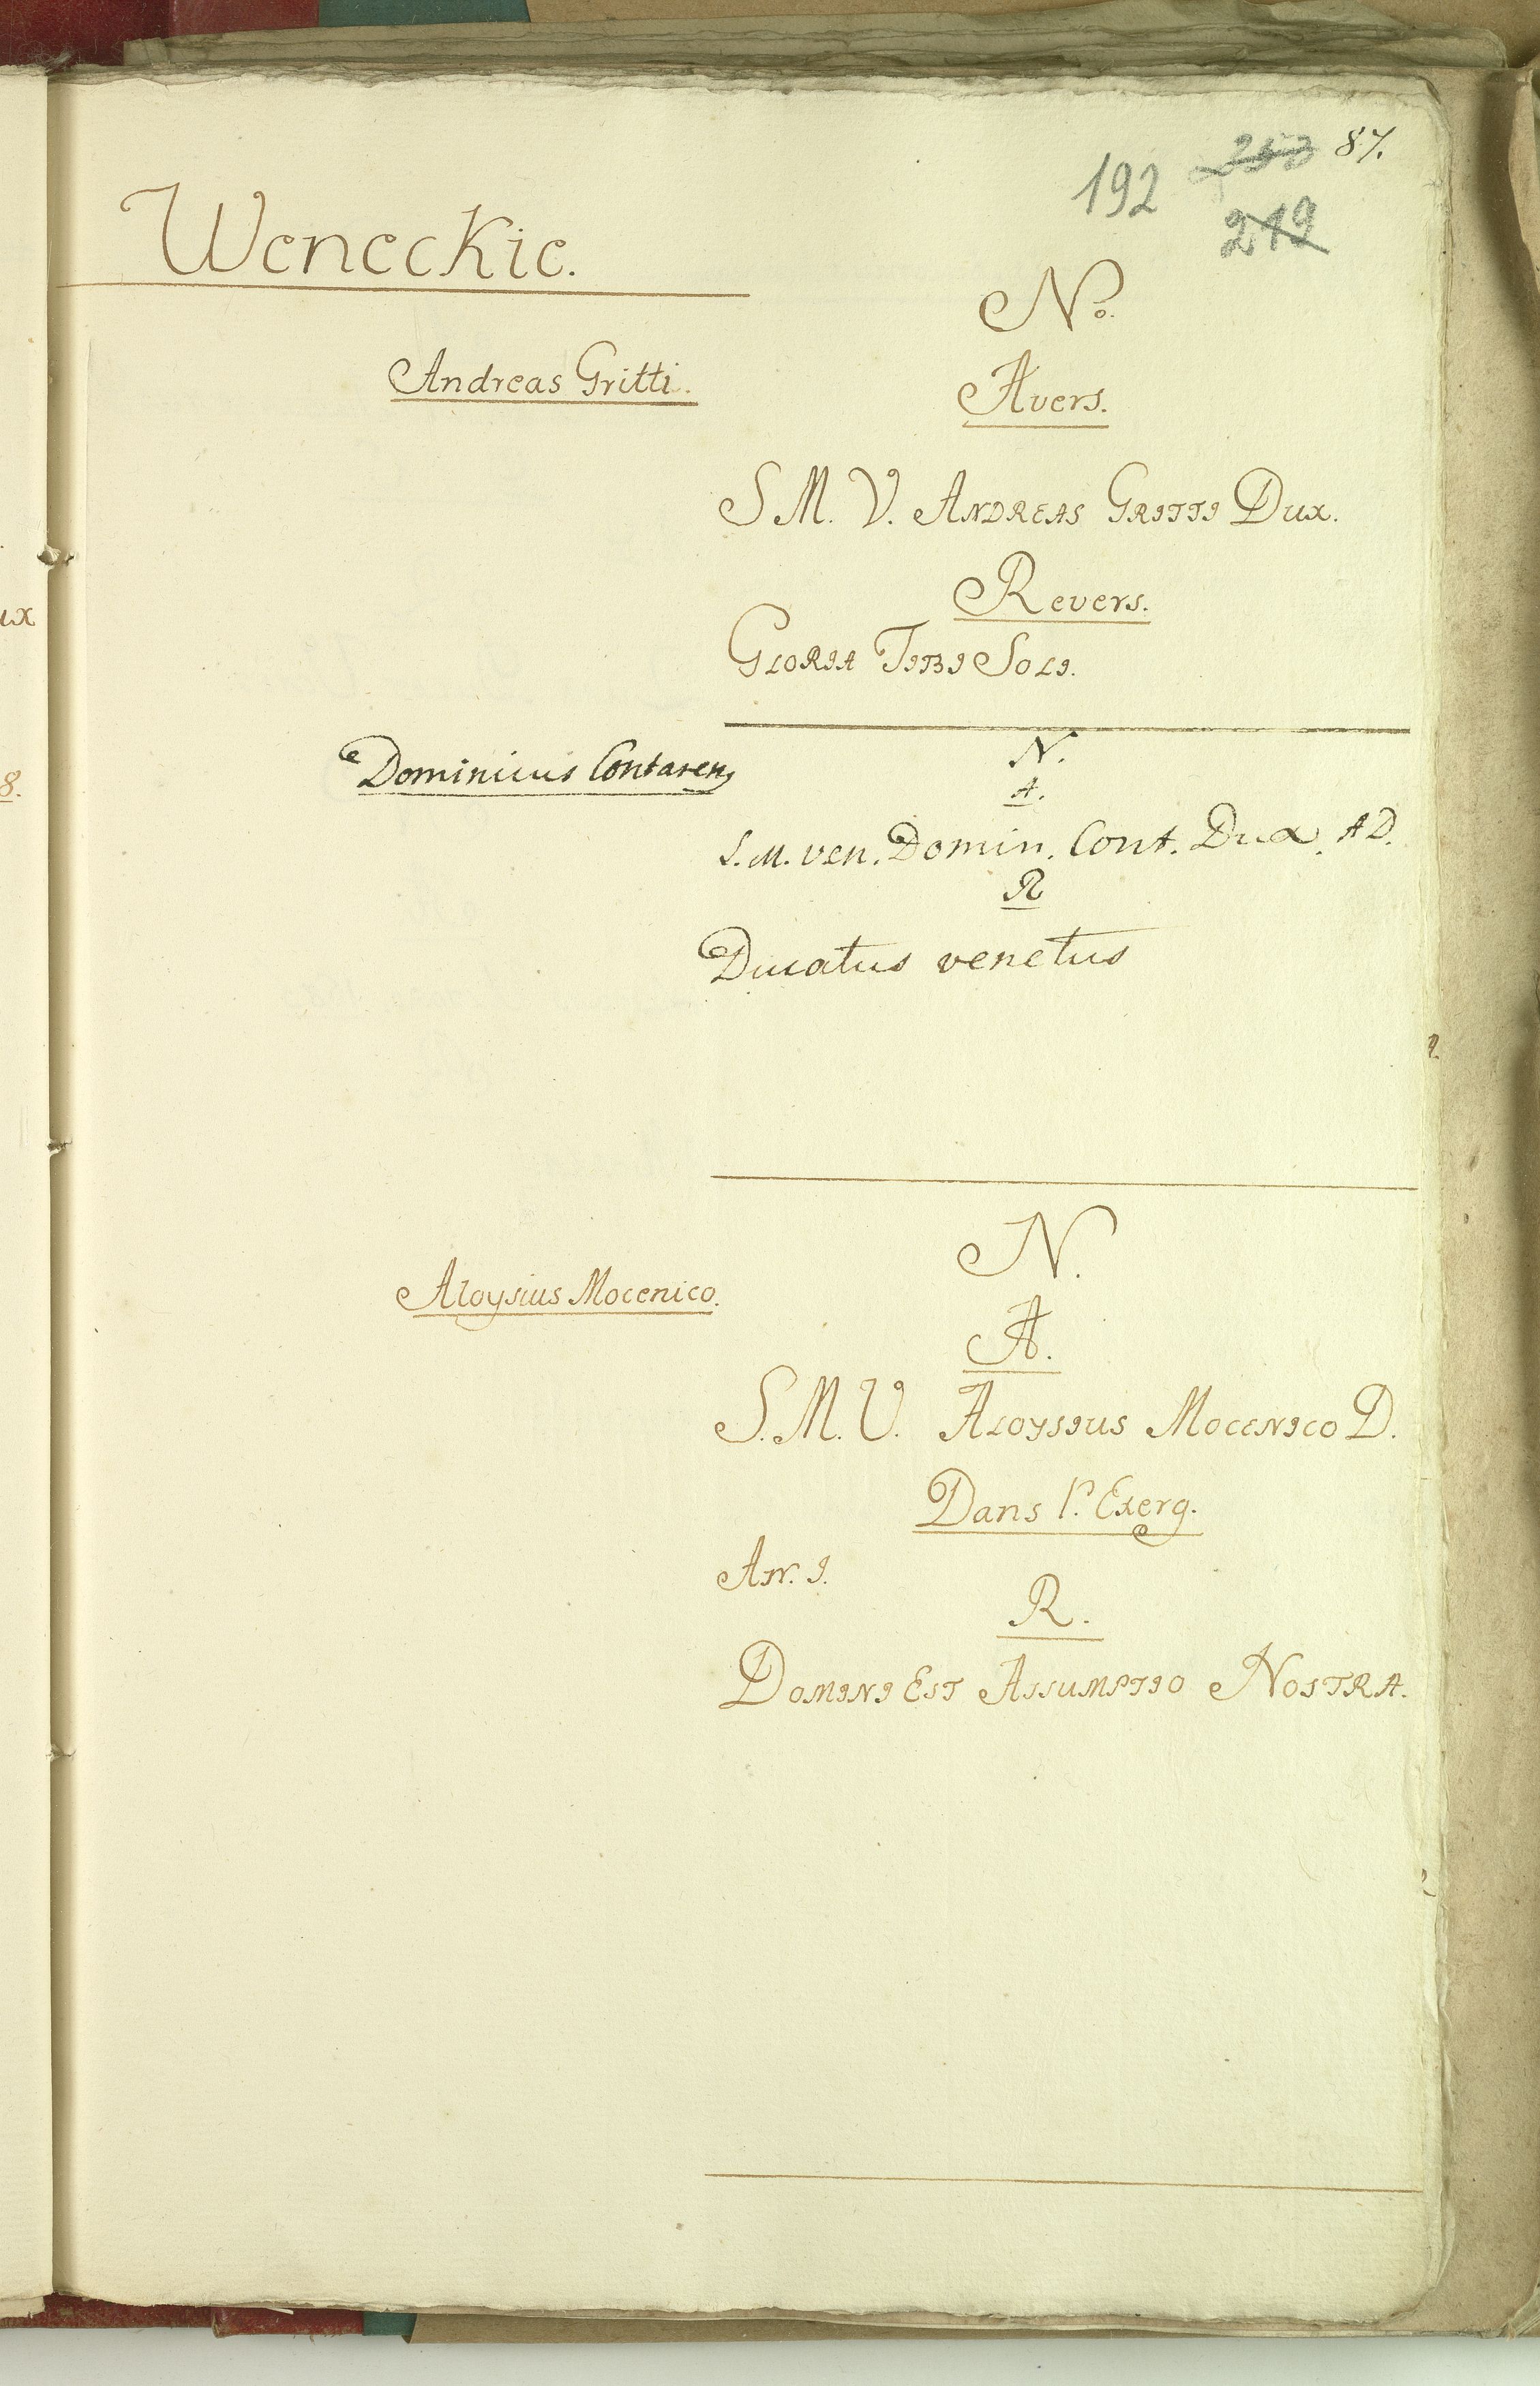 192 253 87.
219
Weneckie.
No.
Andreas Gritti.
Avers.
S M. V. ANDREAS GRITTI DUX.
Revers.
GLORIA TIBI SOLI.
Dominicus Contaren
N.
A.
S. M. ven. Domin. Cont. Dux. A D.
R
Ducatus venetus
N.
Aloysius Mocenico.
A.
S. M. V. ALOYSIUS MOCENICO D.
Dans l'. Exerg.
AN. I.
R.
DOMINI EST ASSUMPTIO NOSTRA.
ux
8.